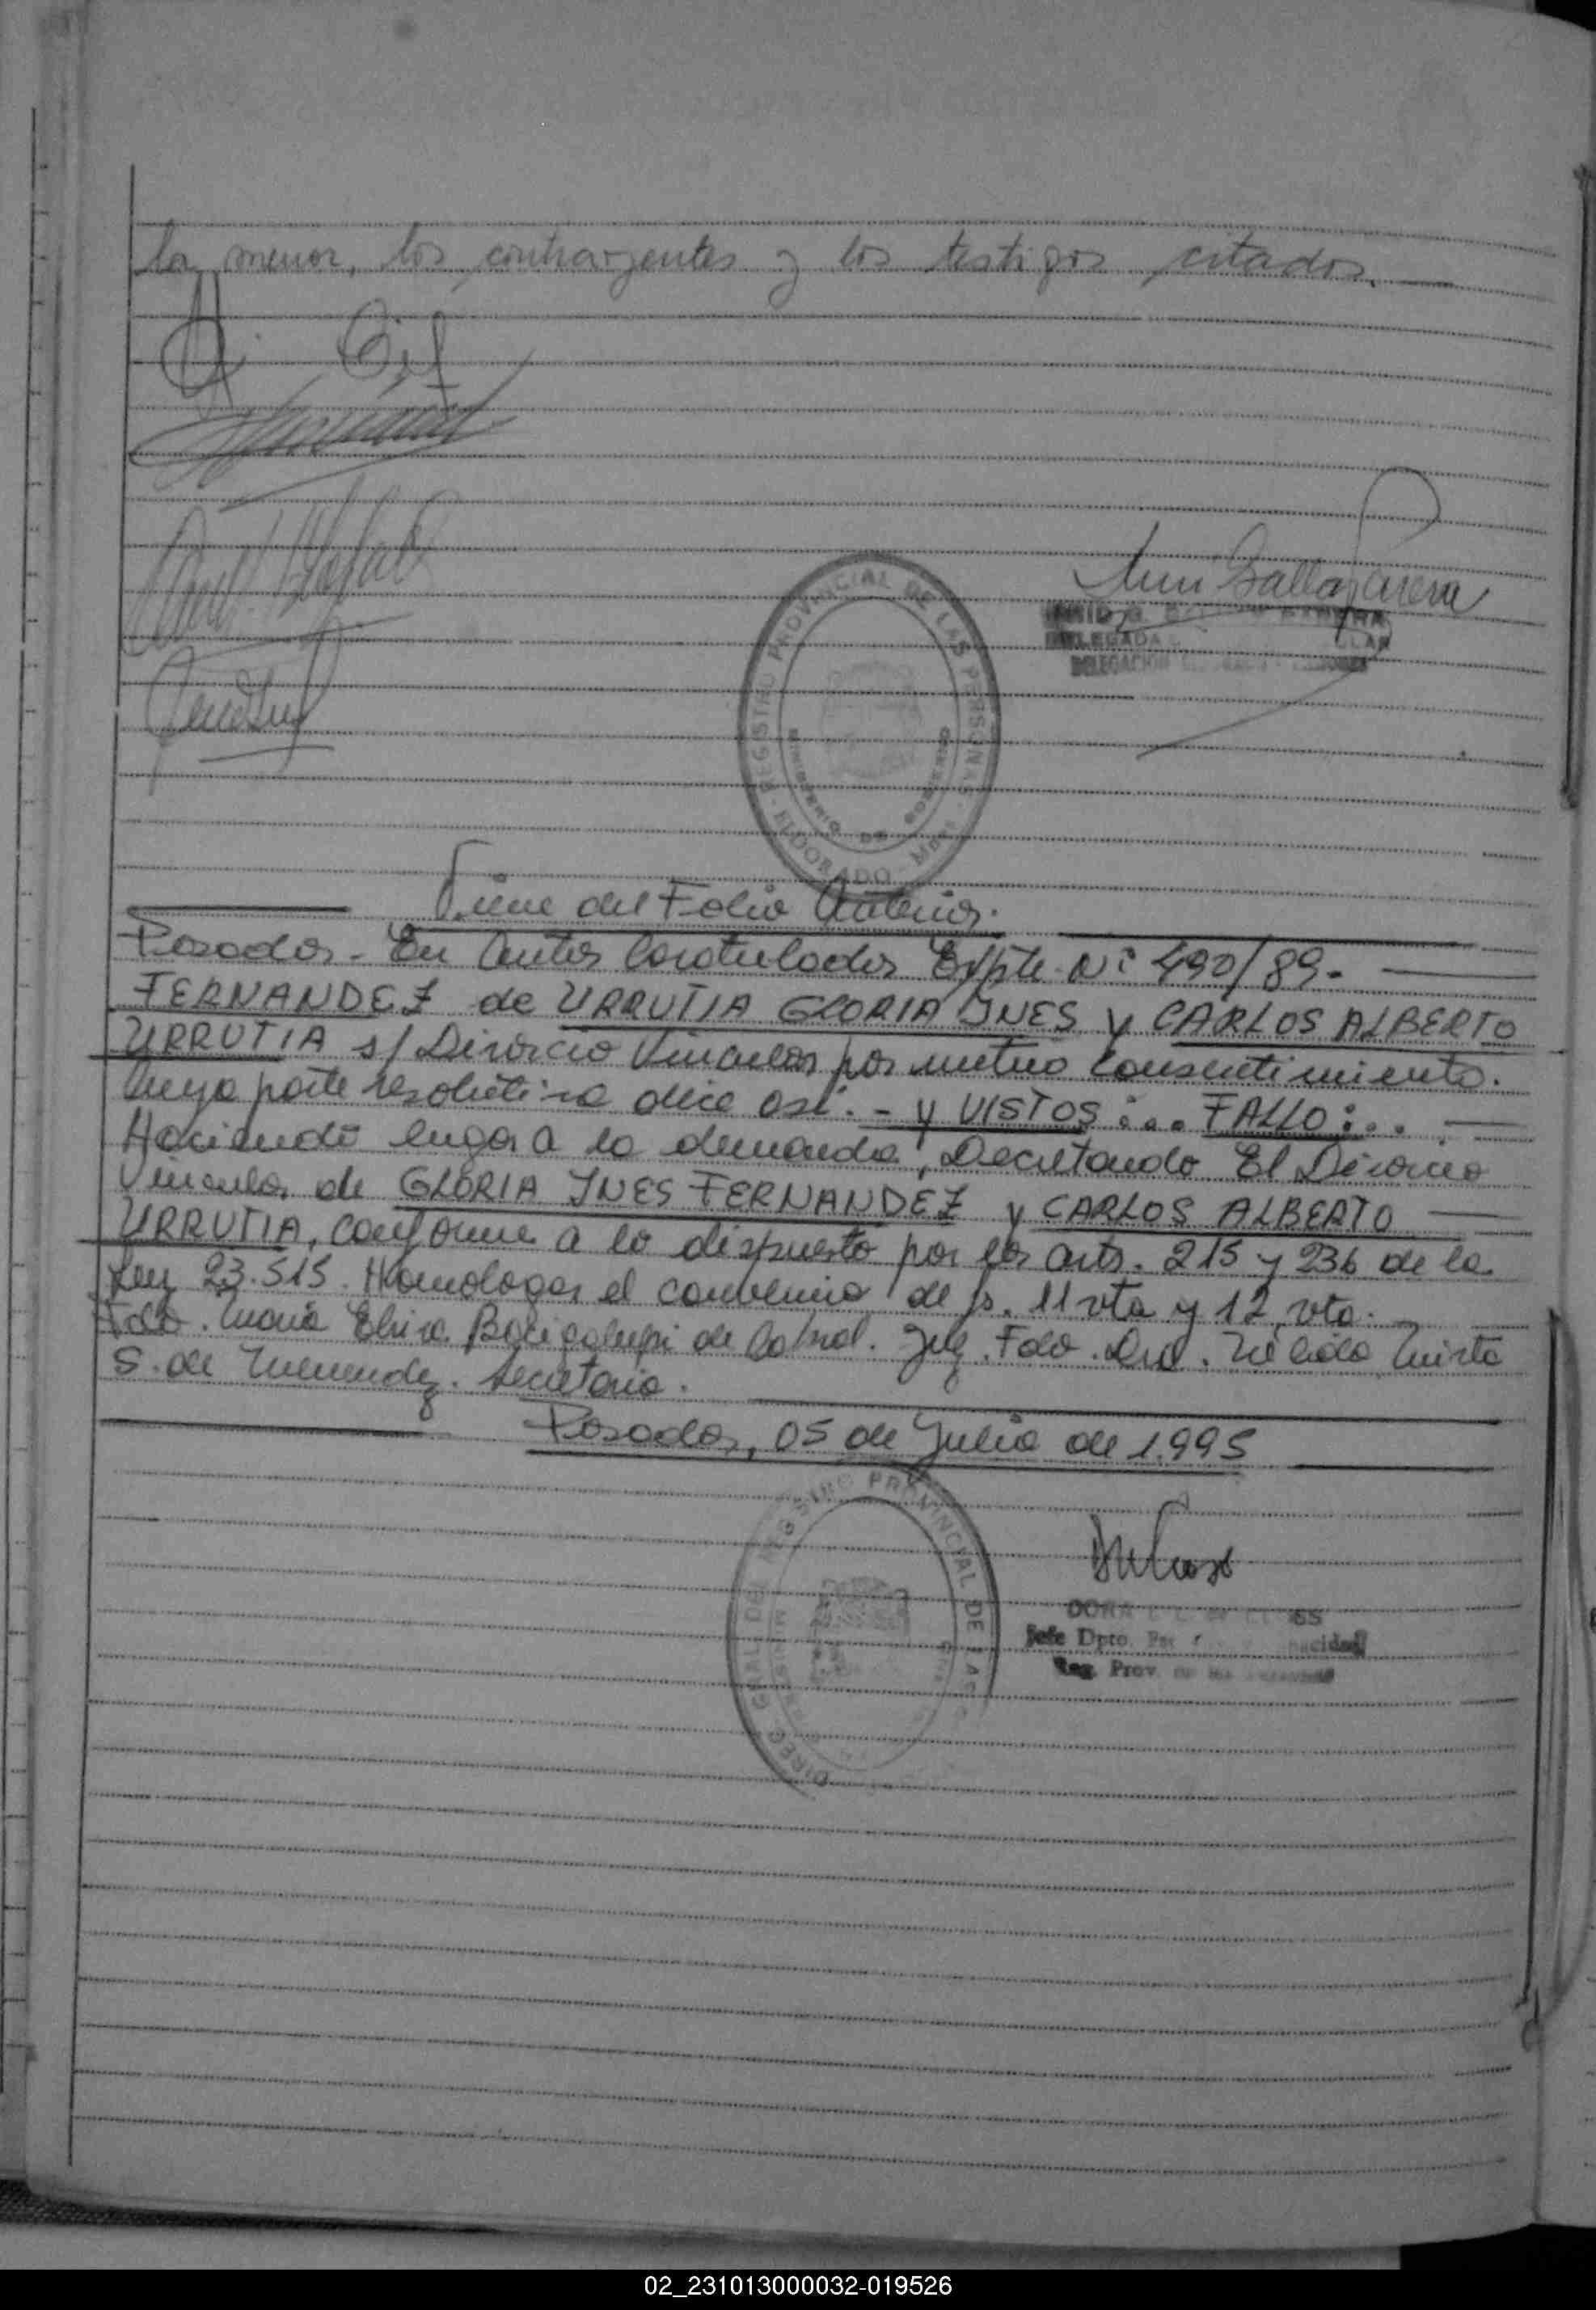 la menor, los contrayentes y los testigos citados.
Gil
REGISTRO PROVINCIAL DE LAS PERSONAS
ELDORADO - Mnes
MINISTERIO DE GOBIERNO
DELEGADA
DELEGACION
Viene del Folio Anterior.
Posadas - En Autos Caratulados Expte. Nº 490/89. -
FERNANDEZ de URRUTIA GLORIA INES y CARLOS ALBERTO
URRUTIA s/ Divorcio Vincular por mutuo Consentimiento.
Cuya parte resolutiva dice así: - y VISTOS:... FALLO:...
Haciendo lugar a la demanda, Decretando El Divorcio
Vincular de GLORIA INES FERNANDEZ y CARLOS ALBERTO
URRUTIA, conforme a lo dispuesto por los arts. 215 y 236 de la
Ley 23.515. Homologar el convenio de fs. 11 vta y 12 vta.
Fdo. María Elvira Bacigalupi de Cabral. Juez. Fdo. Dra. Mirta
S. de Menendez. Secretaria.
Posadas, 05 de Julio de 1.995
DIREC. GRAL DEL REGISTRO PROVINCIAL DE LAS
DORA
Jefe Dpto.
Reg. Prov. de las
02_231013000032-019526